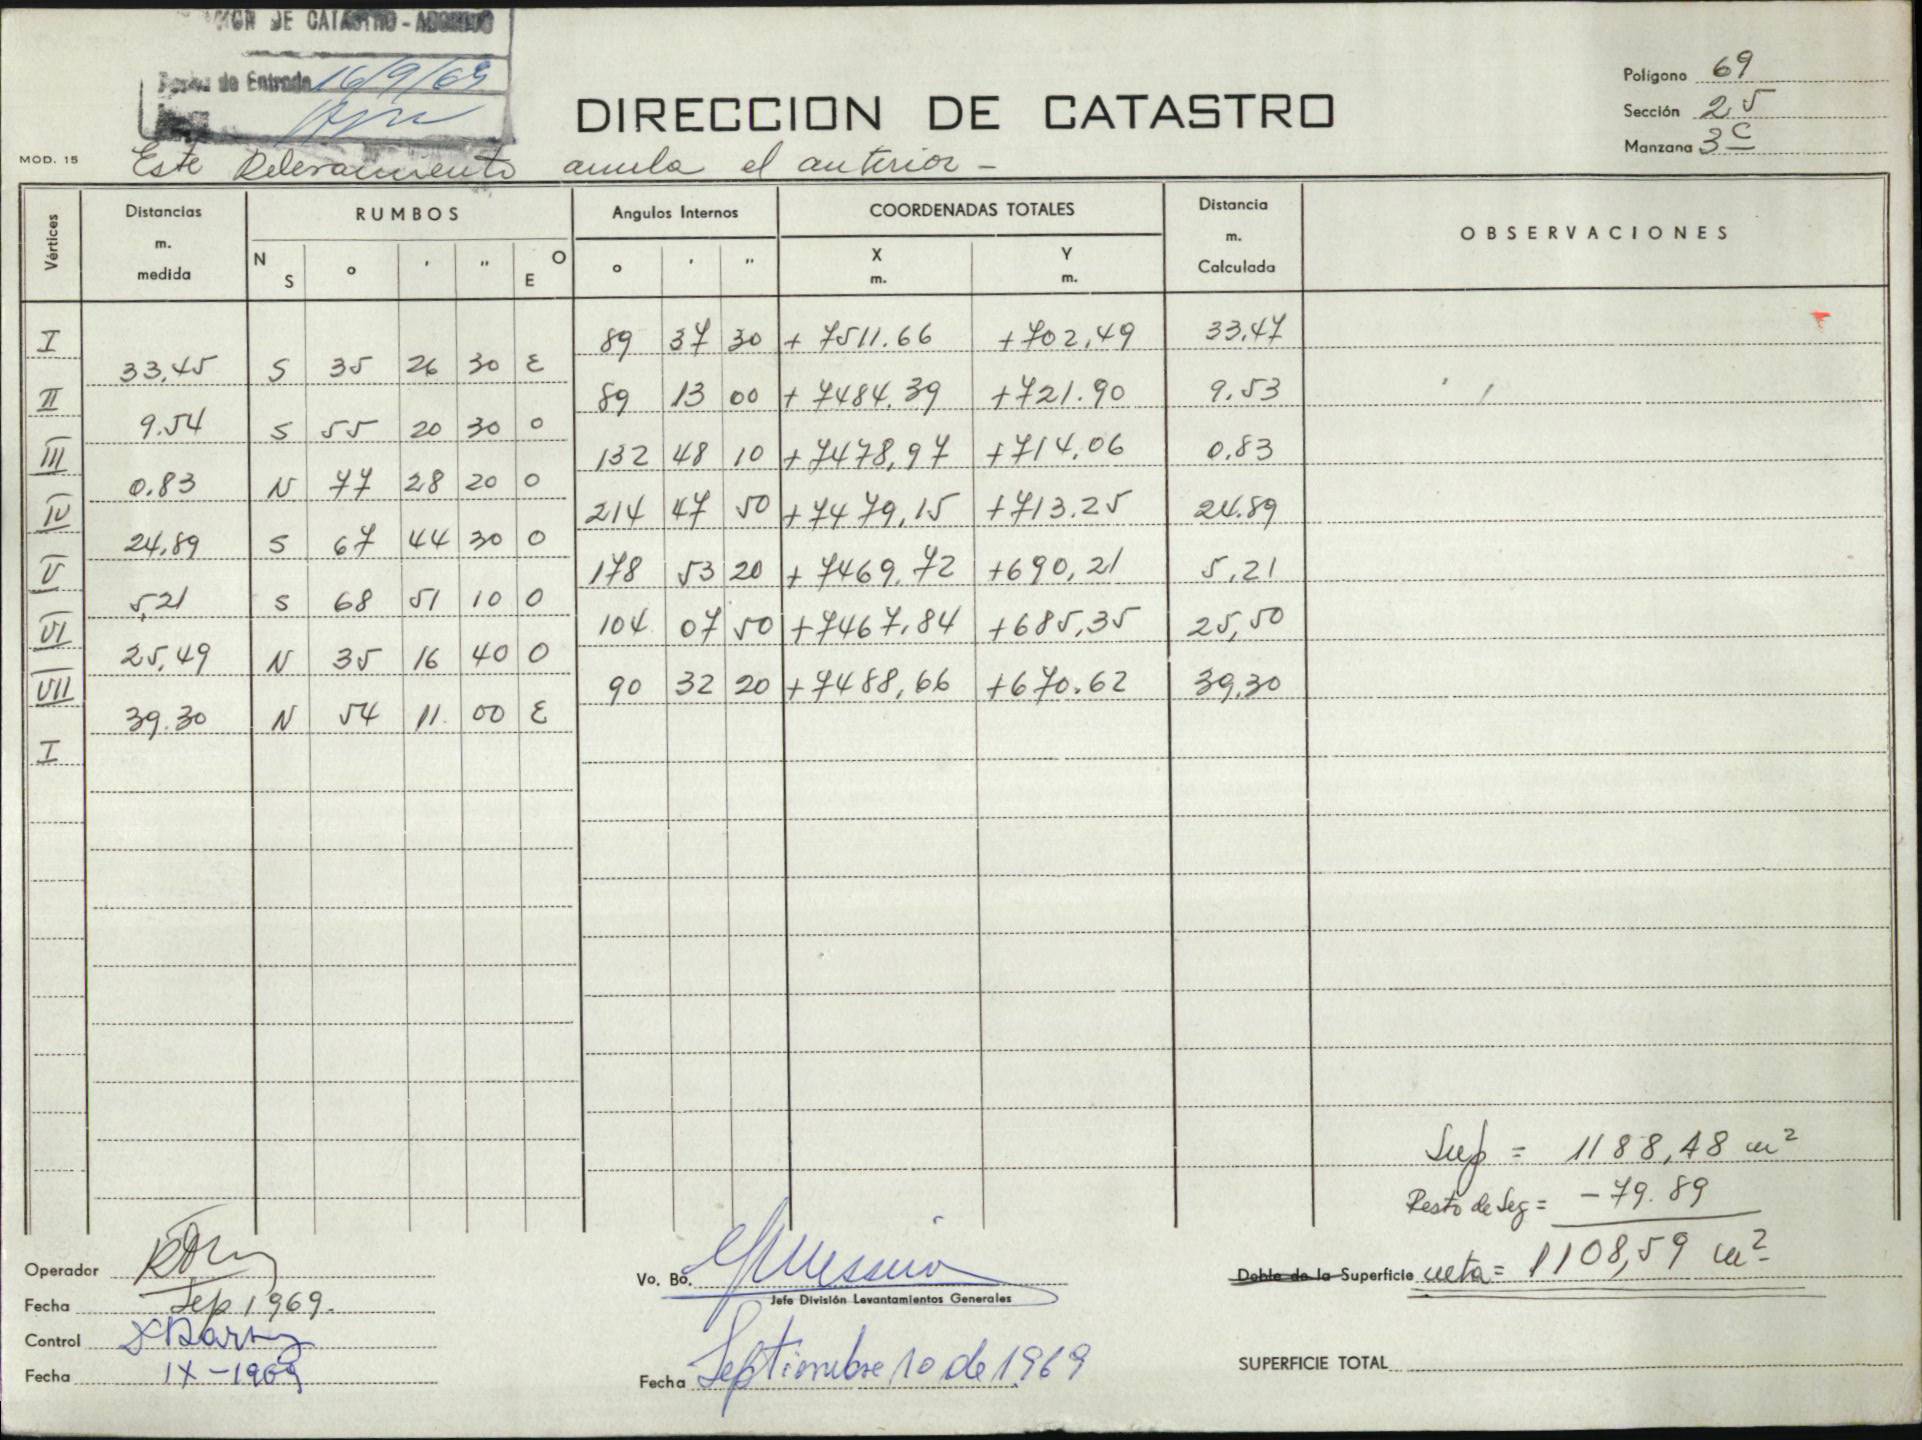 DE CATASTRO - ABONADO
de Entrada 16/9/69
DIRECCION DE CATASTRO
Polígono 69
Sección 25
Manzana 3C
MOD. 15
Este Relevamiento anula el anterior -
Vértices
Distancias m. medida
RUMBOS
Angulos Internos
COORDENADAS TOTALES
Distancia m. Calculada
OBSERVACIONES
N S ° ' " O E ° ' " X m. Y m.
I 89 37 30 + 7511.66 +702,49 33,47
33,45 S 35 26 30 E
II 89 13 00 + 7484.39 +721.90 9.53
9.54 S 55 20 30 O
III 132 48 10 +7478,97 +714,06 0.83
0.83 N 77 28 20 O
IV 214 47 50 +7479,15 +713.25 24.89
24,89 S 67 44 30 O
V 178 53 20 + 7469.72 +690,21 5,21
5,21 S 68 51 10 O
VI 104 07 50 +7467,84 +685,35 25,50
25,49 N 35 16 40 O
VII 90 32 20 +7488,66 +670.62 39,30
39.30 N 54 11 00 E
I
Sup = 1188,48 m²
Resto de Seg = - 79.89
Doble de la Superficie neta = 1108,59 m²
Operador
Fecha Sep 1969.
Control
Fecha IX-1969
Vo. Bo.
Jefe División Levantamientos Generales
Fecha Septiembre 10 de 1969
SUPERFICIE TOTAL